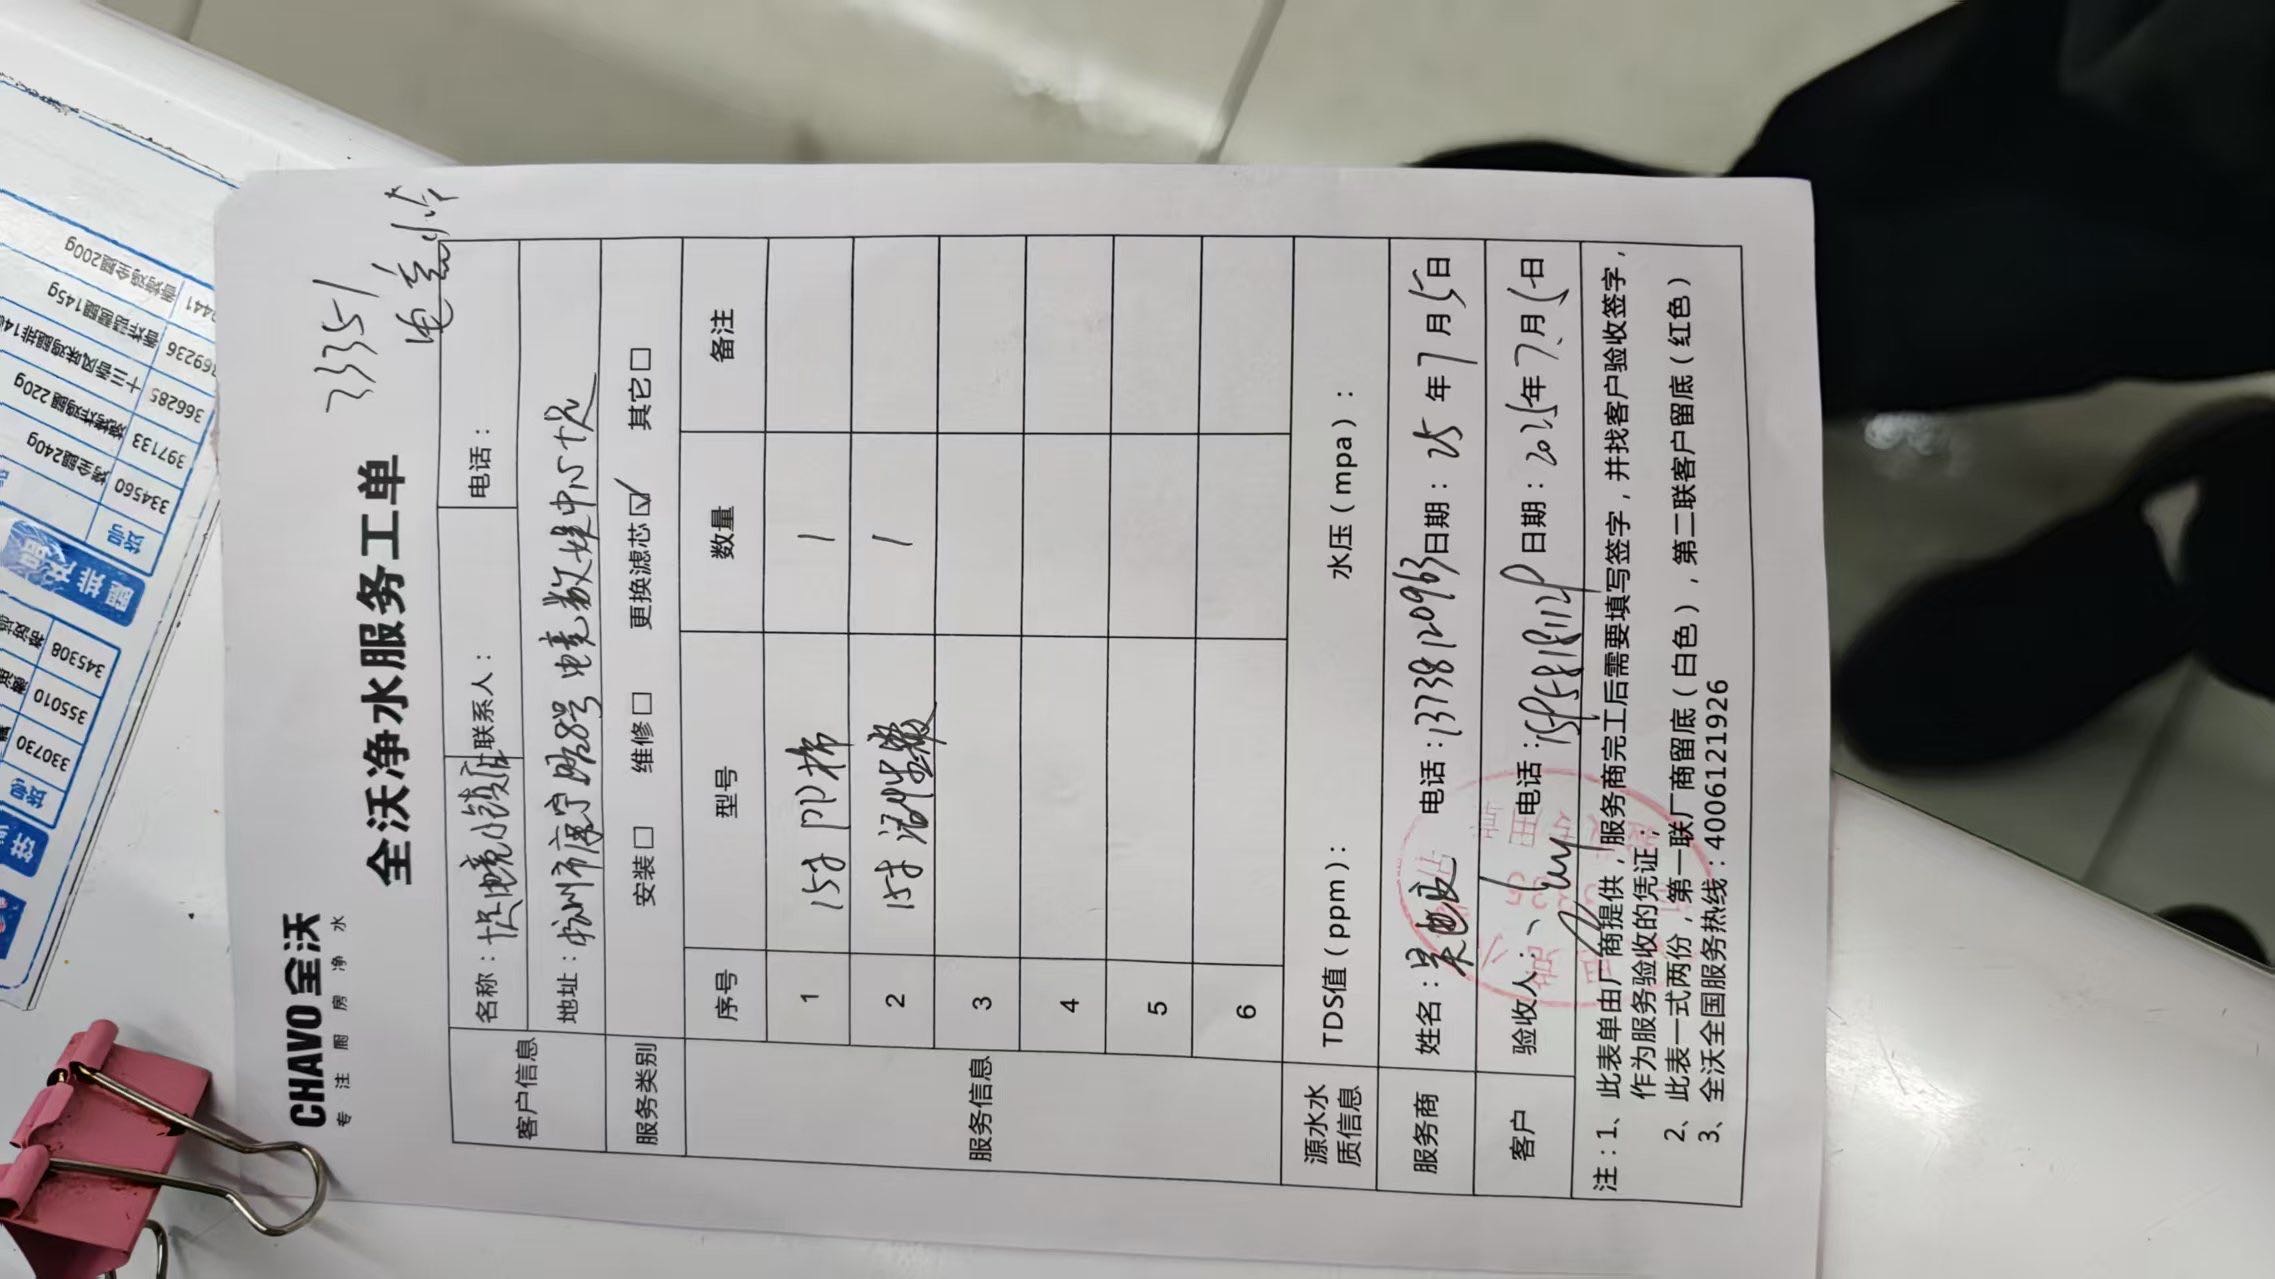 CHAVO 全沃
专注厨房净水
23351
电竞小
全沃净水服务工单
客户信息
名称：电竞小镇店 联系人： 电话：
地址：杭州市康宁路8号电竞数娱中心
服务类别 安装□ 维修□ 更换滤芯☑ 其它□
服务信息
序号 型号 数量 备注
1 15寸PP棉 1
2 15寸 1
3
4
5
6
源水水质信息 TDS值（ppm）： 水压（mpa）：
服务商 姓名：吴 电话：13738120963 日期：25年7月5日
客户 验收人： 电话： 日期：2025年7月5日
注：1、此表单由厂商提供，服务商完工后需要填写签字，并找客户验收签字，
作为服务验收的凭证；
2、此表一式两份，第一联厂商留底（白色），第二联客户留底（红色）
3、全沃全国服务热线：4006121926
334560
397133
366285
全腿240g
220g
145g
全腿200g
345308
355010
330730